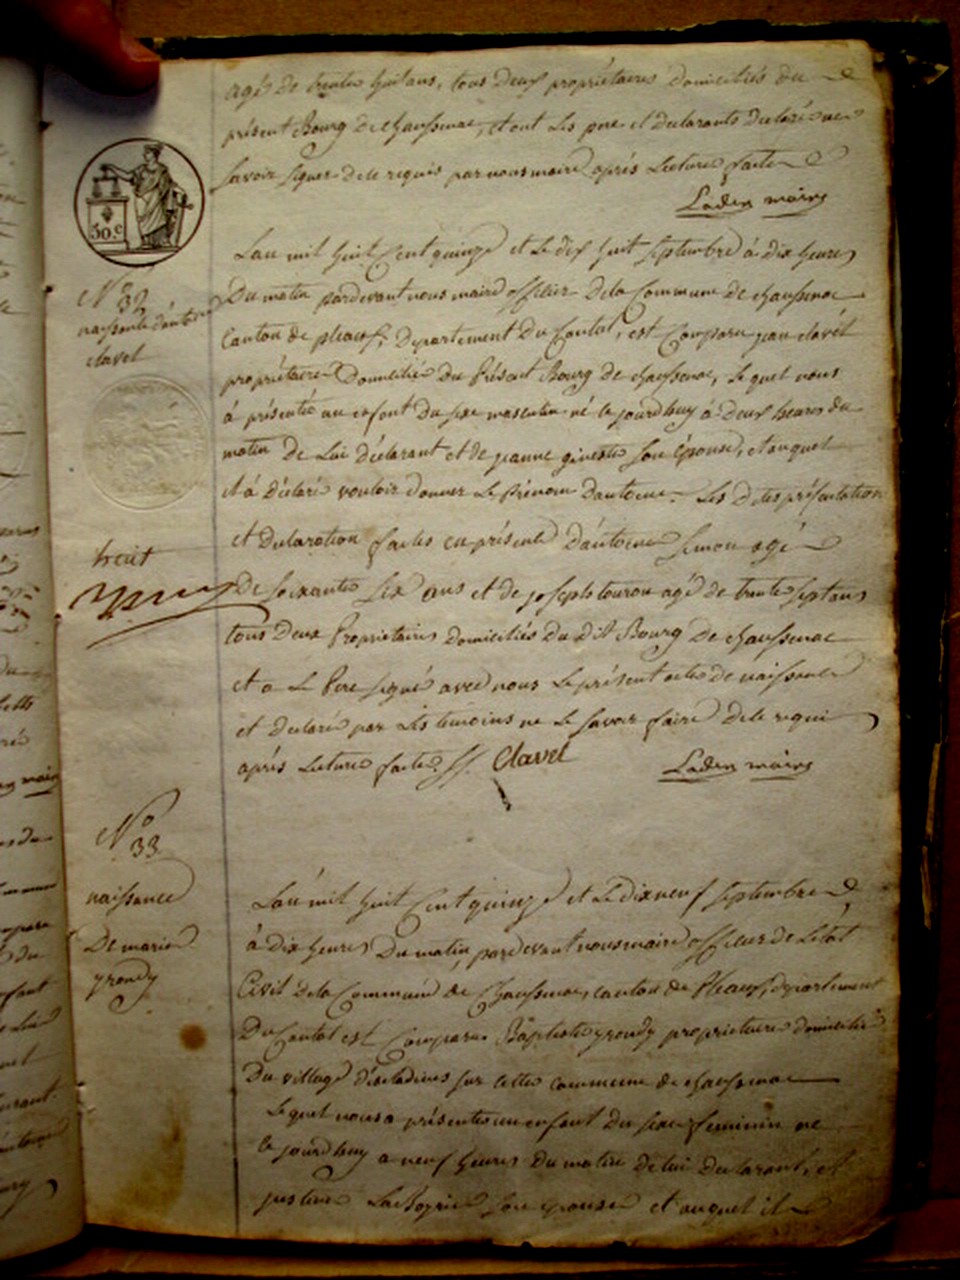 agé de trente huit ans, tous deux propriétaires domiciliés du
présent Bourg de chaussenac, et ont les pere et declarants declaré ne
savoir signer de ce requis par nous maire après Lecture faite
Laden maire
50.c
Lan mil huit Cent quinze et Le dix huit septembre à dix heures
Du matin pardevant nous maire officier dela Commune de chaussenac
Canton de pleaux, Departement Du Cantal, est Comparu jean clavel
propriétaire Domicilié du Présent Bourg de chaussenac, Le quel nous
à présenté un enfant du sexe masculin né ce jourdhuy à deux heures du
matin de Lui déclarant et de jeanne gineste son épouse, et auquel
il à déclaré vouloir donner Le Prénom d'antoine. Les Dites présentation
et Declaration faites en présence d'antoine simon agé
De soixante six ans et de joseph touron agé de trente sept ans
tous Deux Propriétaires domiciliés du dit Bourg De chaussenac
et a Le Pere signé avec nous Le présent acte de naissance
et declaré par Les temoins ne Le savoir faire de ce requis
après Lecture faite. Clavel
Laden maire
No
32
naissance d'antoine
clavel
huit
No
33
naissance
De marie
yrondy
Lan mil huit Cent quinze et Le dix neuf septembre
à dix heures Du matin, pardevant nous maire officier de Létat
Civil dela Commune de Chaussenac, canton de Pleaux, département
Du Cantal est Comparu Baptiste yrondy proprietaire domicilié
Du village d'escladines sur cette commune de chaussenac
Lequel nous a présenté un enfant du sexe feminin né
ce jourdhuy a neuf heures Du matin de lui declarant, et
justine Laboyrie son epouse et auquel il